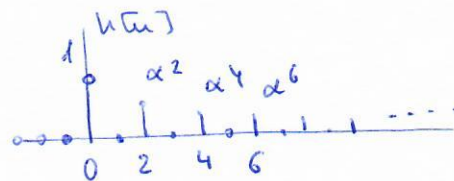 h[n]
1
α² α⁴ α⁶
0 2 4 6